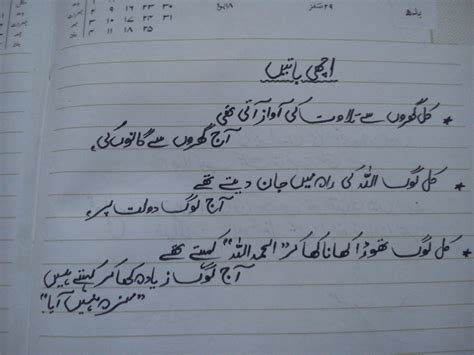 بدھ ۲۹ صفر
۹ ۱۶ ۲۳ ۳۰
۱۰ ۱۷ ۲۴ ۳۱
۱۱ ۱۸ ۲۵
اچھی باتیں
* کل گھروں سے تلاوت کی آواز آتی تھی
آج گھروں سے گانوں کی،
* کل لوگ اللہ کی راہ میں جان دیتے تھے
آج لوگ دولت پر،
* کل لوگ تھوڑا کھانا کھا کر "الحمداللہ" کہتے تھے
آج لوگ زیادہ کھا کر کہتے ہیں
"مزہ نہیں آیا"